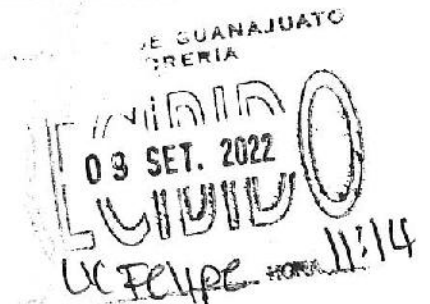 E GUANAJUATO
RERIA
ECIBIDO
09 SET. 2022
LIC Felipe HORA 11:14